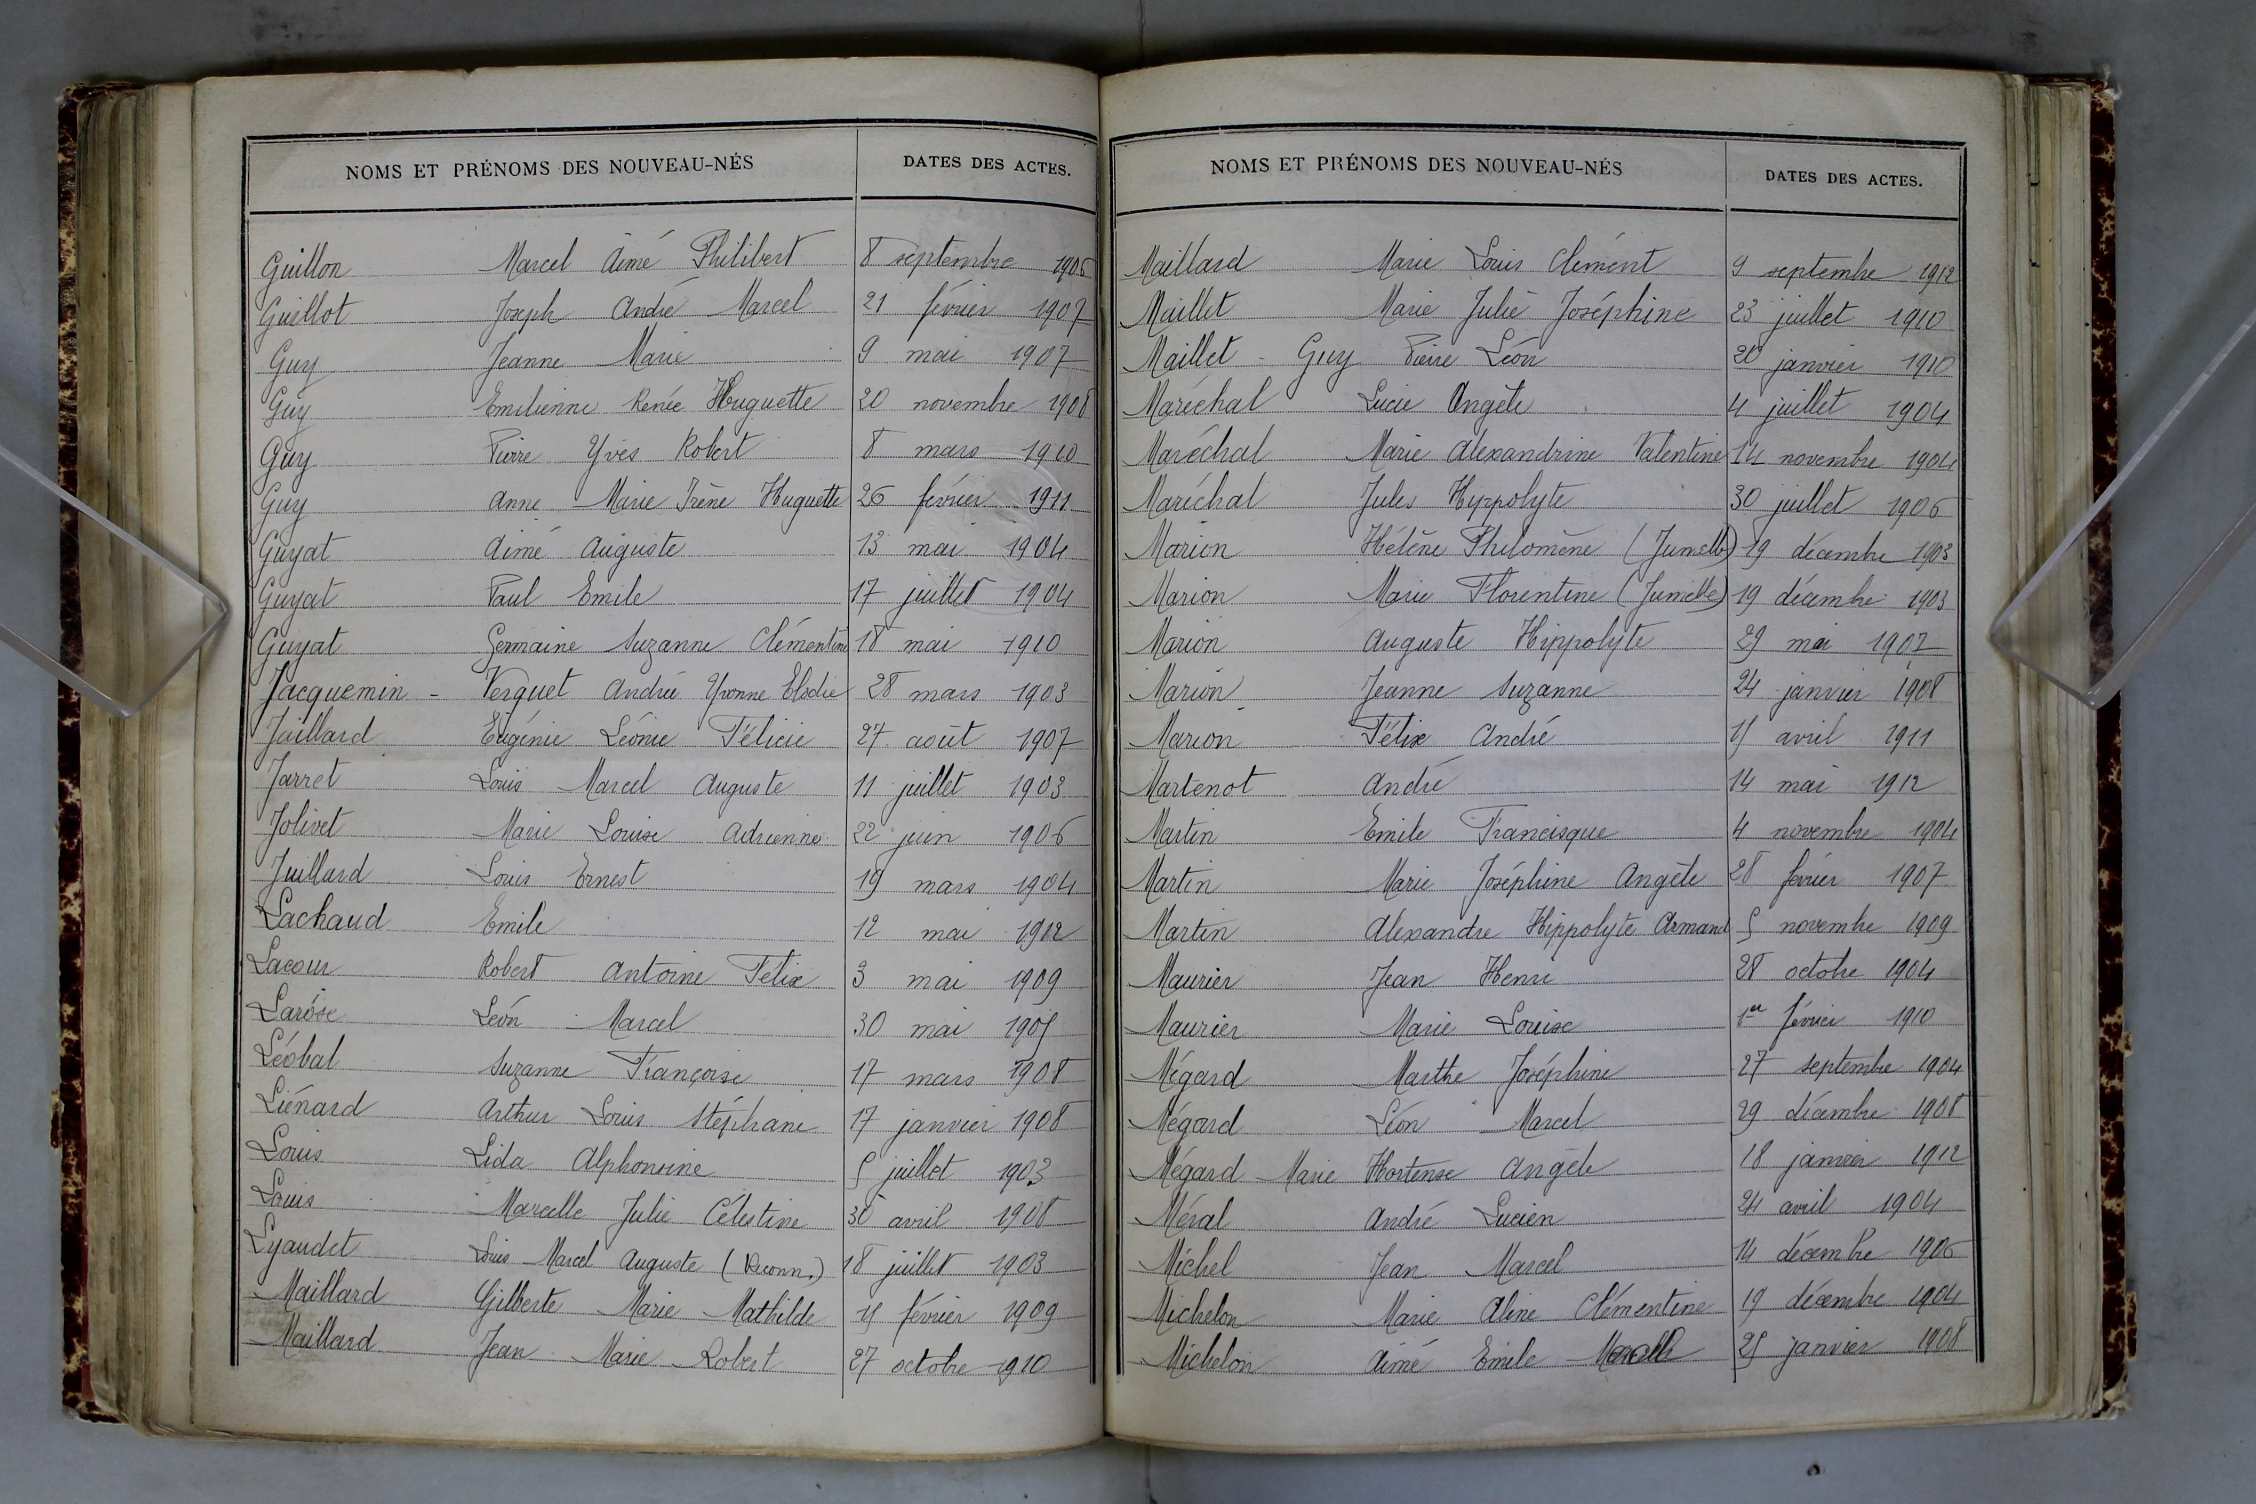 NOMS ET PRÉNOMS DES NOUVEAU-NÉS DATES DES ACTES.
Guillon Marcel Aimé Philibert 8 septembre 1906
Guillot Joseph André Marcel 21 février 1907
Guy Jeanne Marie 9 mai 1907
Guy Emilienne Renée Huguette 20 novembre 1908
Guy Pierre Yves Robert 8 mars 1910
Guy Anne Marie Irène Huguette 26 février 1911
Guyat Aimé Auguste 13 mai 1904
Guyat Paul Emile 17 juillet 1904
Guyat Germaine Suzanne Clémentine 18 mai 1910
Jacquemin - Verguet Andrée Yvonne Elodie 28 mars 1903
Jaillard Eugénie Léonie Félicie 27 août 1907
Jarret Louis Marcel Auguste 11 juillet 1903
Jolivet Marie Louise Adrienne 22 juin 1906
Juillard Louis Ernest 19 mars 1904
Lachaud Emile 12 mai 1912
Lacour Robert Antoine Félix 3 mai 1909
Larose Léon Marcel 30 mai 1905
Léobal Suzanne Françoise 17 mars 1908
Liénard Arthur Louis Stéphane 17 janvier 1908
Louis Lida Alphonsine 5 juillet 1903
Louis Marcelle Julie Célestine 30 avril 1908
Lyaudet Louis Marcel Auguste (Reconn.) 18 juillet 1903
Maillard Gilberte Marie Mathilde 15 février 1909
Maillard Jean Marie Robert 27 octobre 1910
NOMS ET PRÉNOMS DES NOUVEAU-NÉS DATES DES ACTES.
Maillard Marie Louis Clément 9 septembre 1912
Maillet Marie Julie Joséphine 23 juillet 1910
Maillet - Guy Pierre Léon 20 janvier 1910
Maréchal Lucie Angèle 4 juillet 1904
Maréchal Marie Alexandrine Valentine 14 novembre 1904
Maréchal Jules Hyppolyte 30 juillet 1906
Marion Hélène Philomène (Jumelle) 19 décembre 1903
Marion Marie Florentine (Jumelle) 19 décembre 1903
Marion Auguste Hippolyte 29 mai 1907
Marion Jeanne Suzanne 24 janvier 1908
Marion Félix André 15 avril 1911
Martenot André 14 mai 1912
Martin Emile Francisque 4 novembre 1904
Martin Marie Joséphine Angèle 28 février 1907
Martin Alexandre Hippolyte Armand 5 novembre 1909
Maurier Jean Henri 28 octobre 1904
Maurier Marie Louise 1er février 1910
Mégard Marthe Joséphine 27 septembre 1904
Mégard Léon Marcel 29 décembre 1908
Mégard Marie Hortense Angèle 18 janvier 1912
Méral André Lucien 24 avril 1904
Michel Jean Marcel 14 décembre 1906
Michelon Marie Aline Clémentine 19 décembre 1904
Michelon Aimé Emile 25 janvier 1908